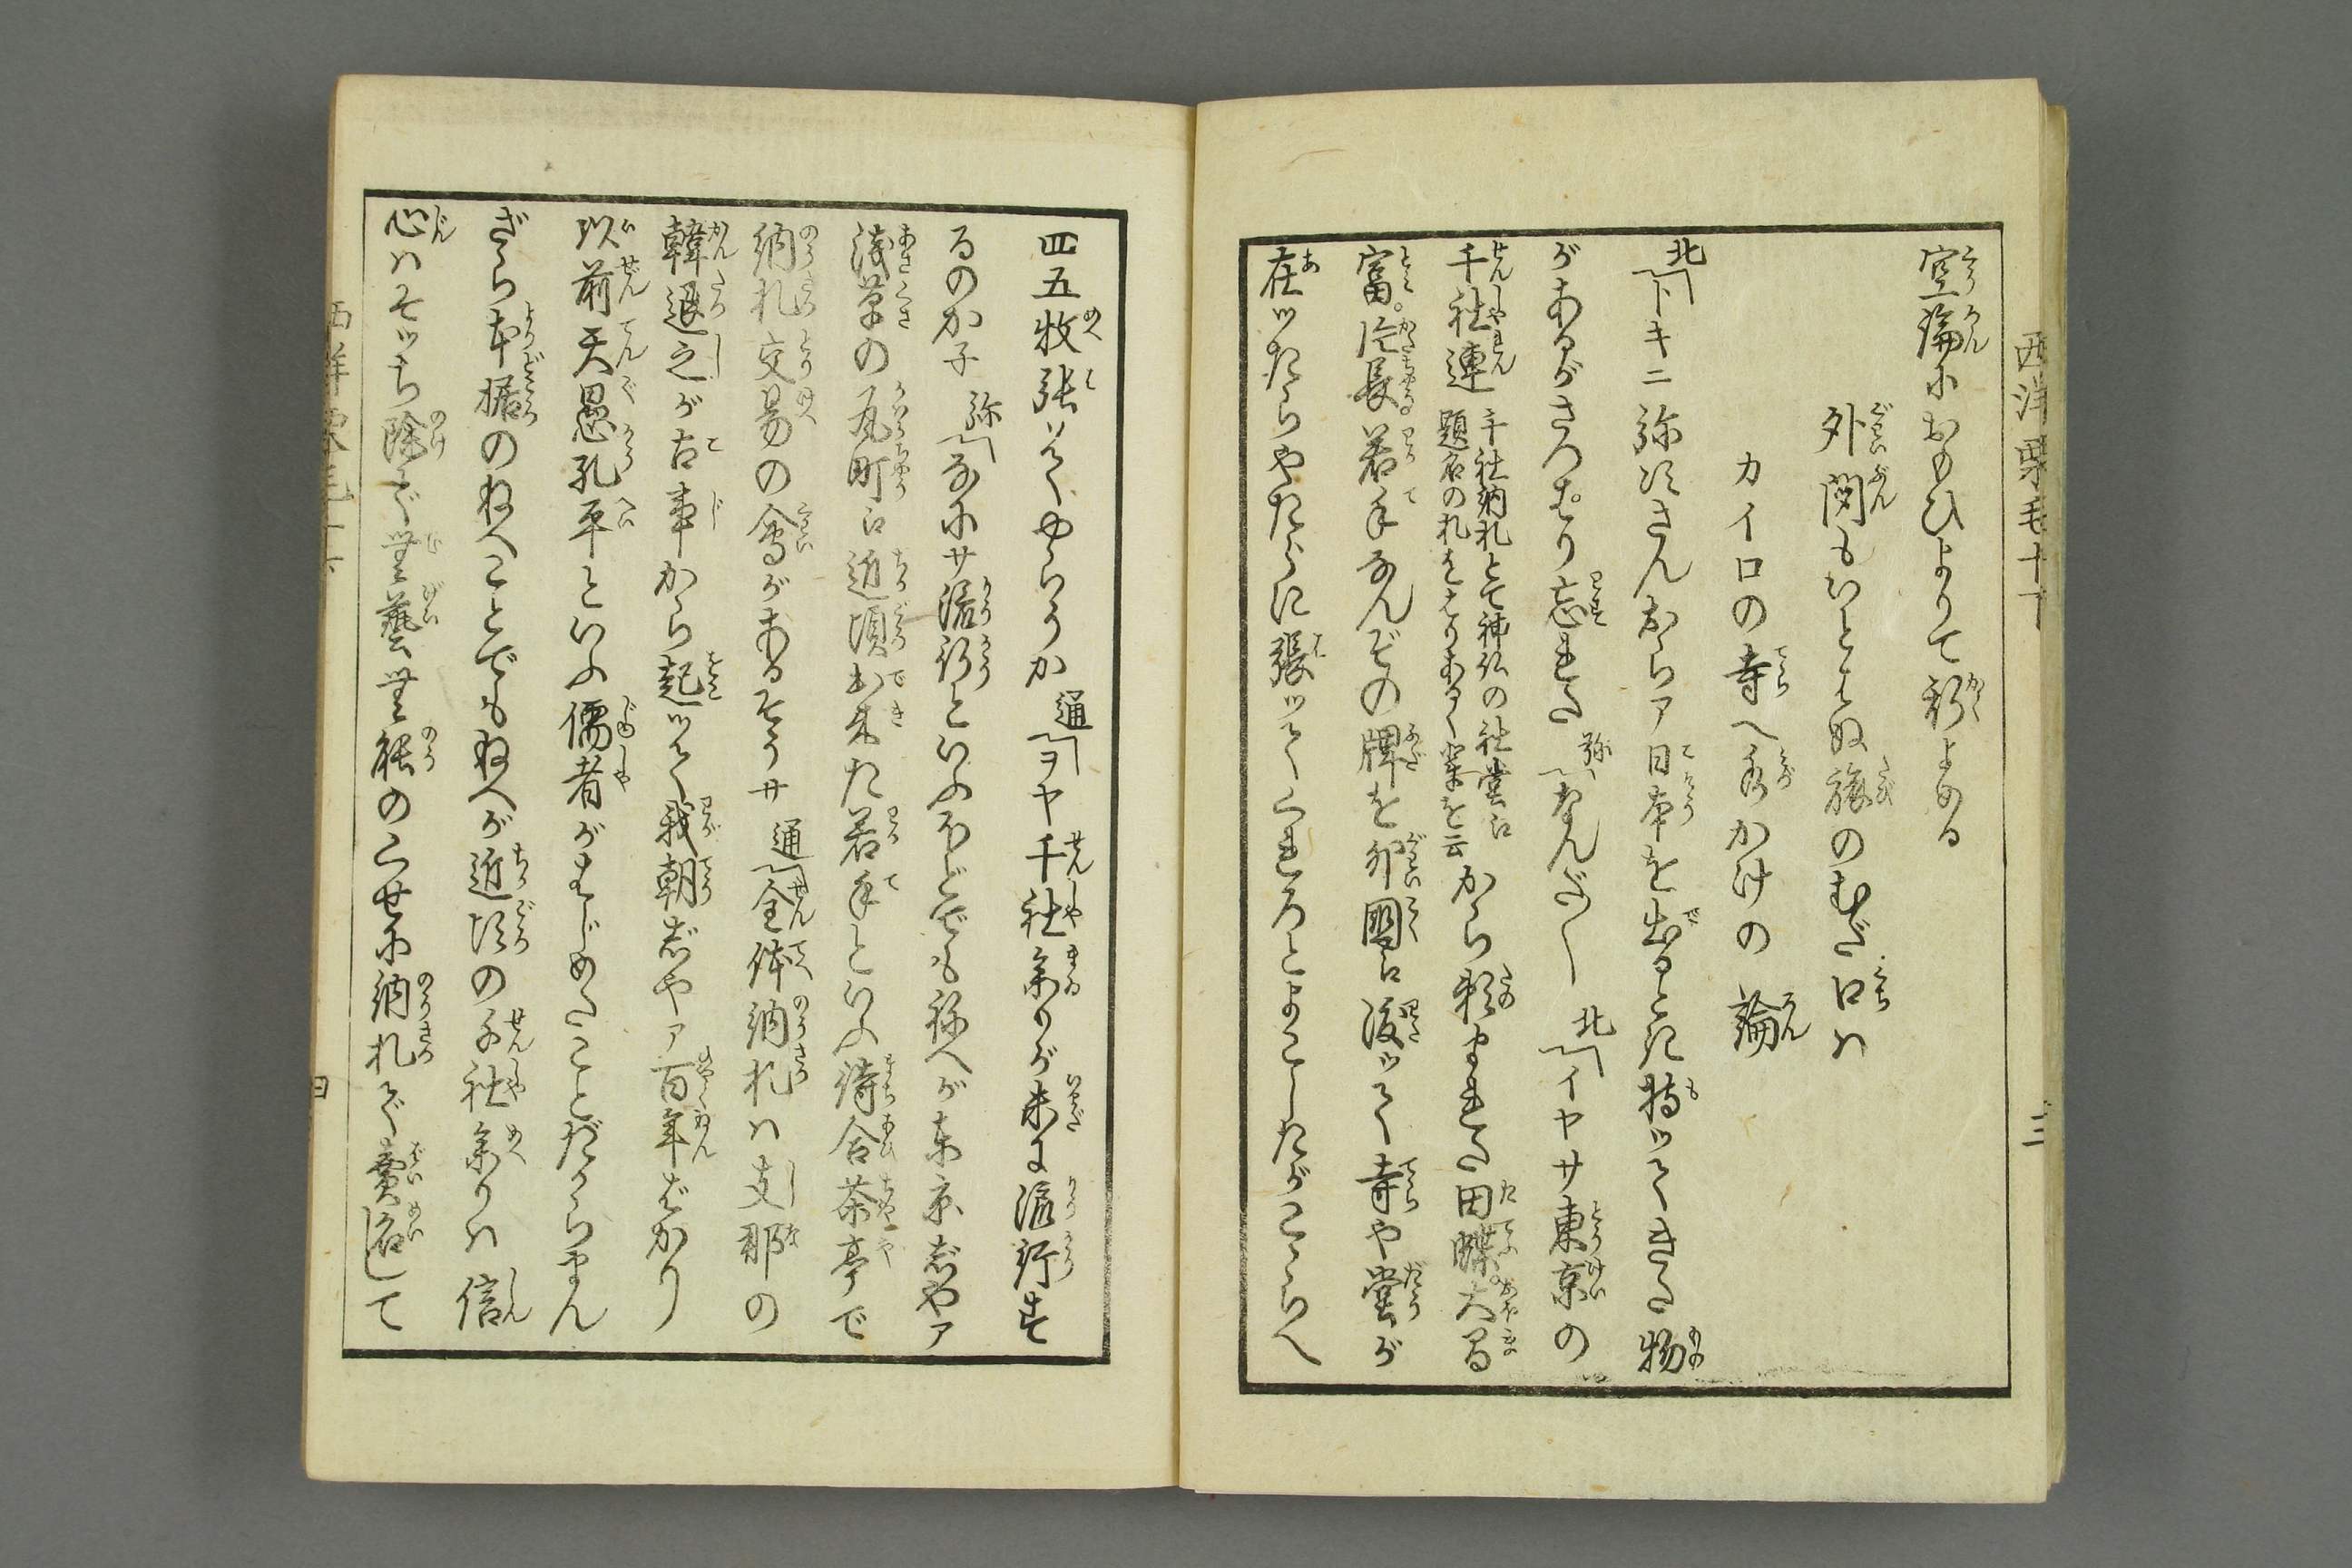 西洋栗毛十下 三
空論におもひよりて斯よめる
外聞もいとはぬ旅のむだ口ハ
カイロの寺へ水かけの論
北「トキニ弥次さんおらア日本を出るとき持ツてきた物
があるがさつぱり忘れた 弥「なんだ〳〵 北「イヤサ東京の
千社連 千社納札とて神仏の社堂に 題名の札をはりあるく輩を云 から頼まれた田蝶。大馬
富。片長。若手なんぞの牌を外国に渡ツて寺や堂が
在ツたらやたらに張ツてくれろとよこしたがこゝらへ
四五枚張てやらうか 通「ヲヤ千社参りが未だ流行す
るのか子 弥「なにサ流行といふほどでも称へが東京じやア
浅草の瓦町に近頃出来た若手といふ待合茶亭で
納札交易の会があるそうサ 通「全体納札ハ支那の
韓退之が古事から起ツて我朝じやア百年ばかり
以前天愚孔平といふ儒者がはじめたことだからまん
ざら本据のねへことでもねへが近頃の千社参りハ信
心ハそツち除で無藝無能のくせに納札で賣名して